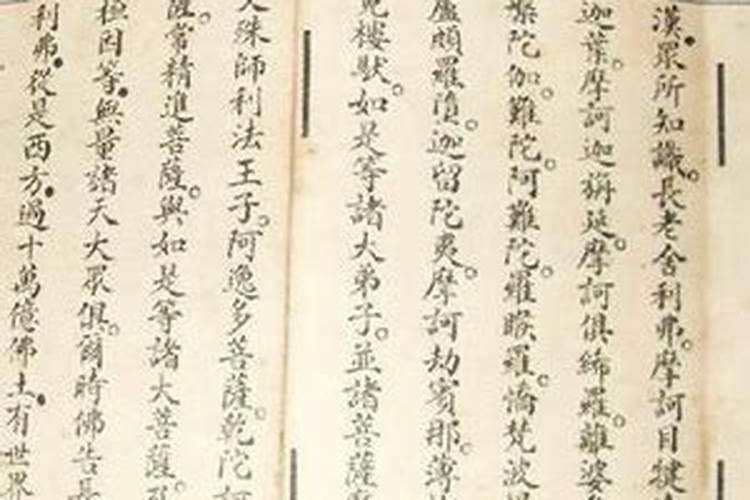 漢眾所知識。長老舍利弗。摩訶目犍
迦葉。摩訶迦旃延。摩訶俱絺羅。離婆
陀伽。難陀。阿難陀。羅睺羅。憍梵波
盧頗羅墮。迦留陀夷。摩訶劫賓那。薄
樓馱。如是等諸大弟子。並諸菩薩
殊師利法王子。阿逸多菩薩。乾陀訶
薩。常精進菩薩。與如是等諸大菩薩。
桓因等。無量諸天大眾俱。爾時佛告長
利弗。從是西方。過十萬億佛土。有世界